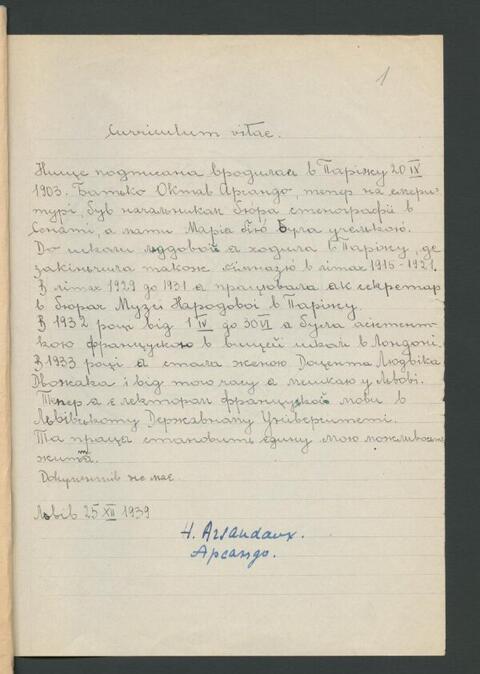 1
Curriculum vitae.
Нище подписана вродилась в Паріжу 20 IX
1903. Батько Октав Арсандо, тепер на емери-
турі, був начальникам бюра стенографії в
Сенаті, а мати Маріа Ґю була учителькою.
До школи людовой я ходила в Паріжу, де
закінчила також ґімназію в літах 1915-1921.
В літах 1929 до 1931 я працювала як секретар
в бюрах Музеї Народової в Паріжу.
В 1932 році від 1 IV до 30 VI я була асістент-
кою французскою в вищей школі в Лондоні.
В 1933 році я стала женою Доцента Людвіка
Двожака і від того часу я мешкаю у Львові.
Тепер я є лектором французкой мови в
Львівському Державному Університеті.
Та праця становить едину мою можливость
житя.
Документів не має
Львів 25 XII 1939
H. Arsandaux.
Арсандо.